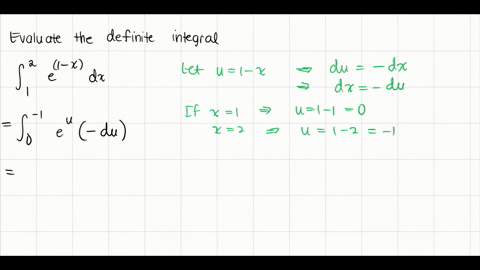 Evaluate the definite integral
∫₁² e^(1-x) dx
Let u = 1-x ⇒ du = -dx
⇒ dx = -du
If x=1 ⇒ u=1-1=0
x=2 ⇒ u=1-2=-1
= ∫₀⁻¹ e^u (-du)
=